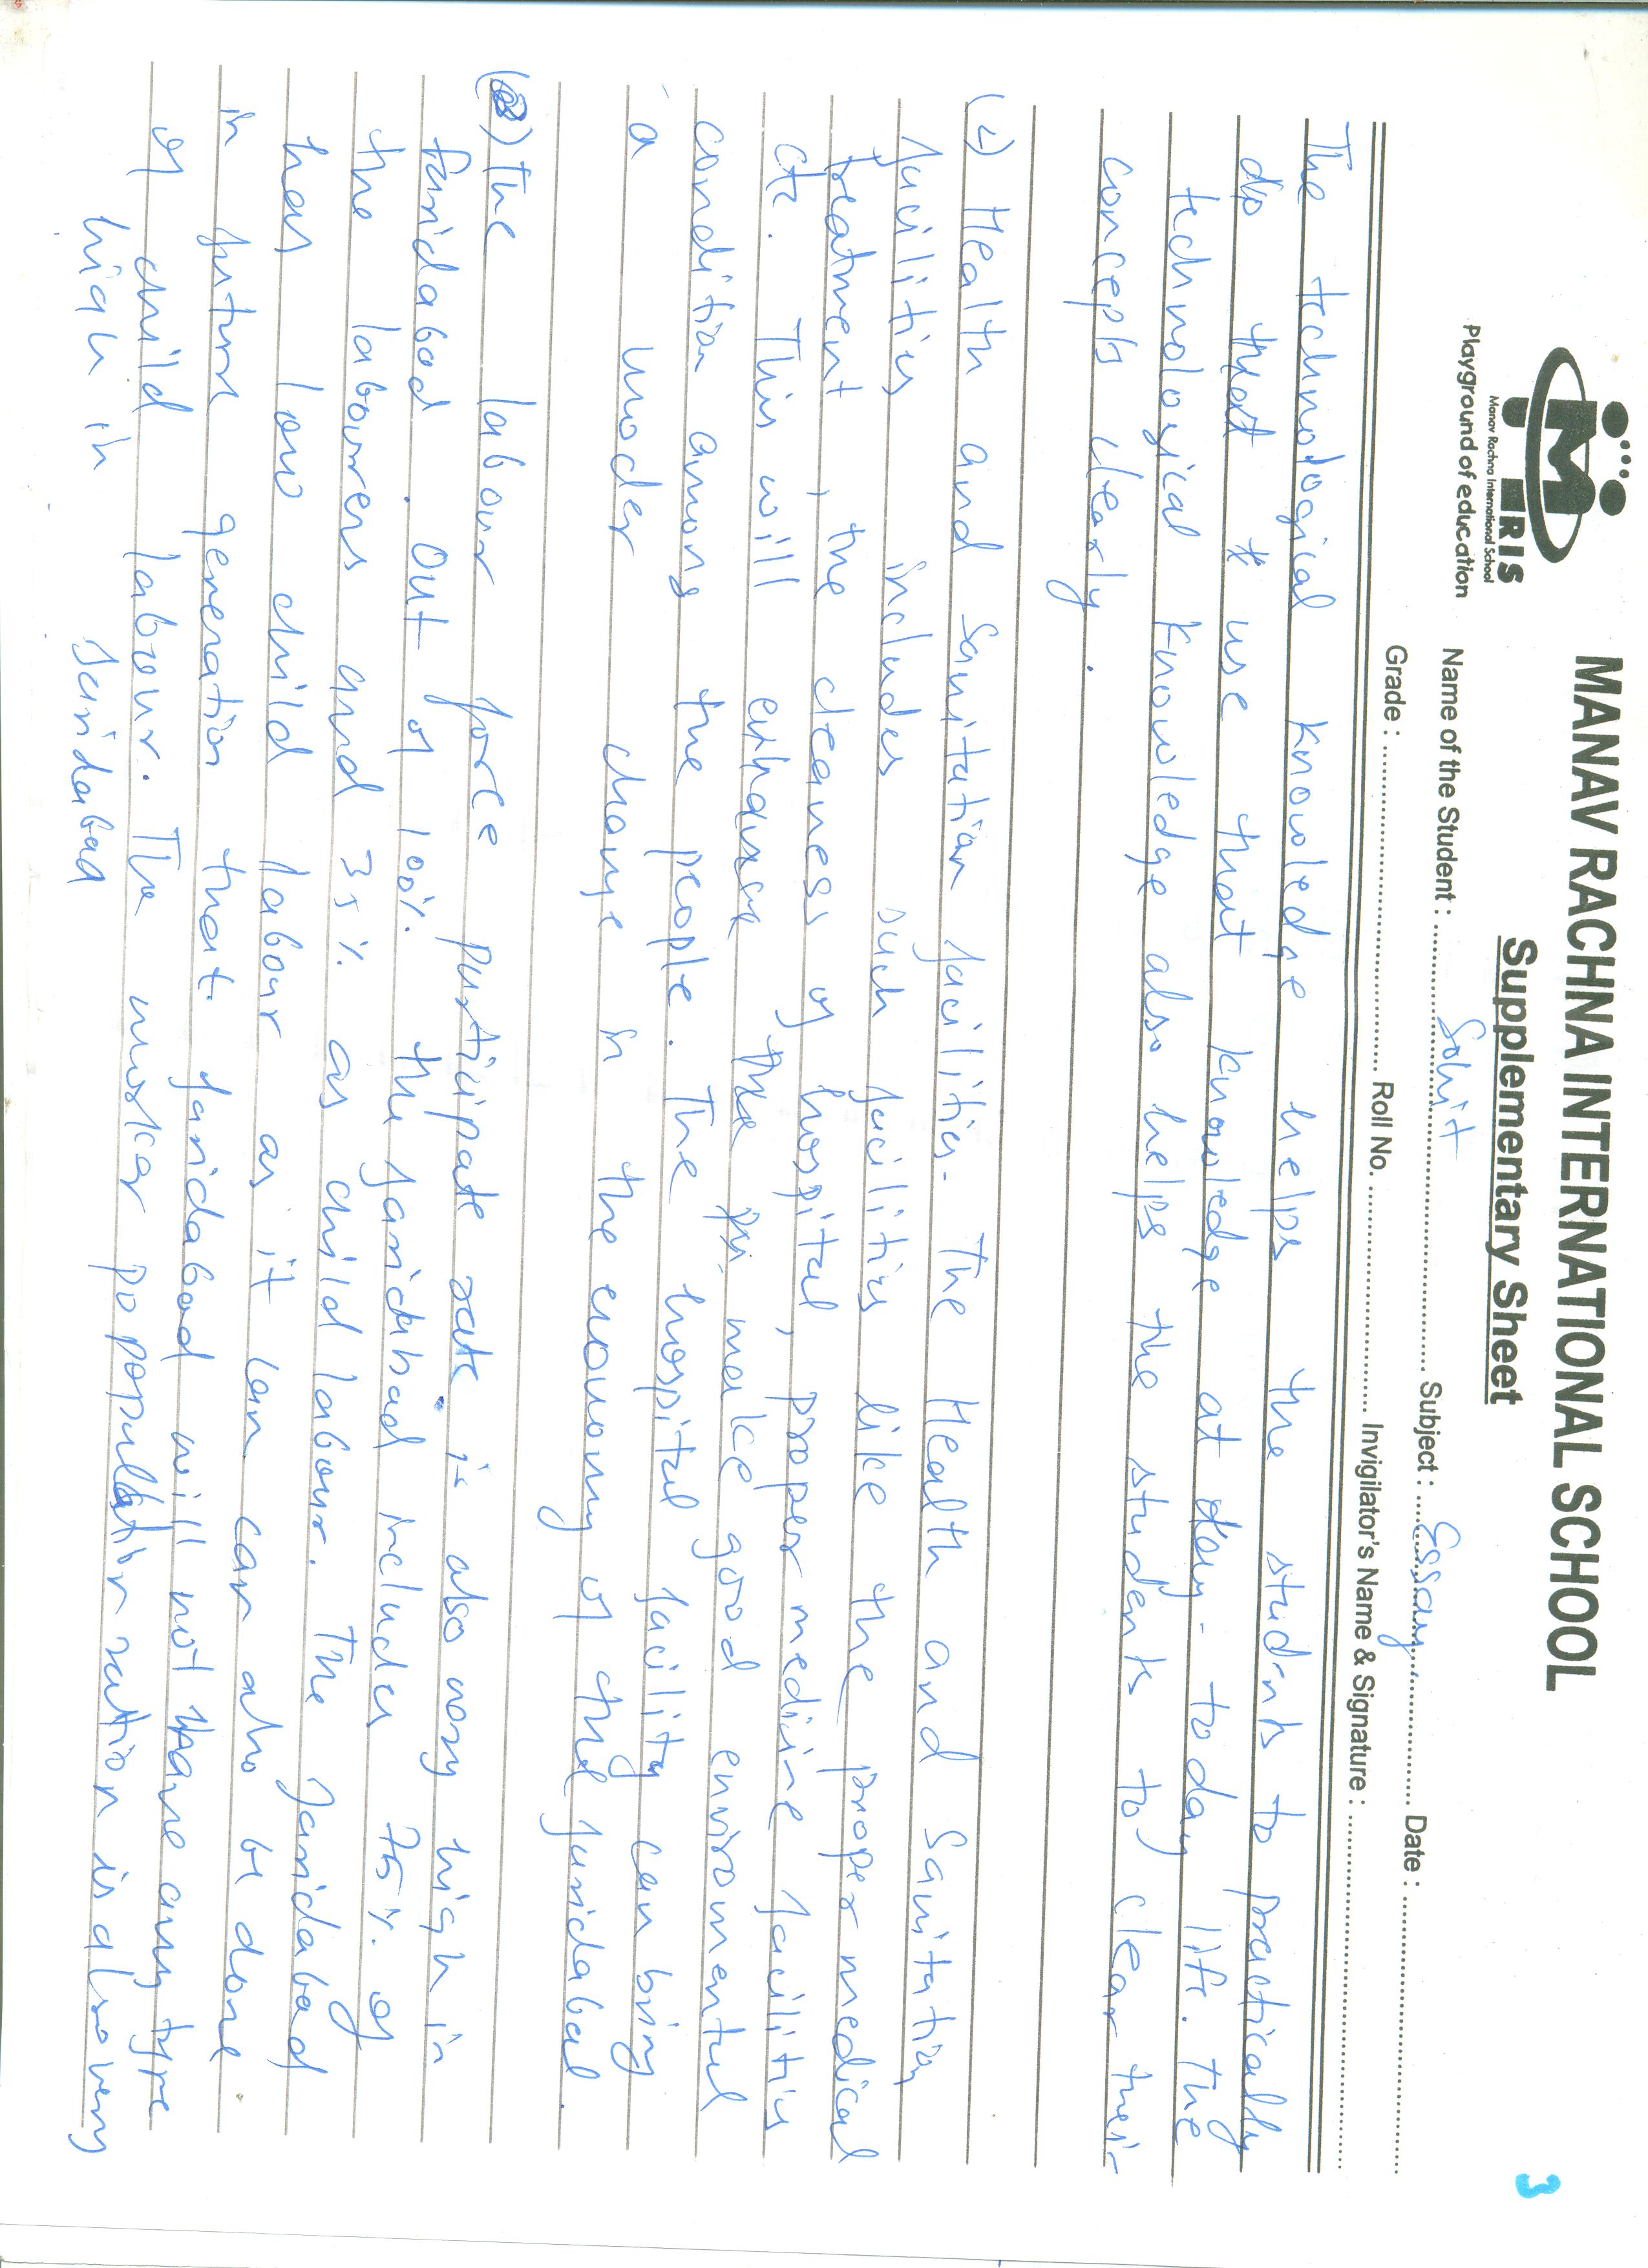 MANAV RACHNA INTERNATIONAL SCHOOL
Supplementary Sheet
3
M RIS
Manav Rachna International School
Playground of education
Name of the Student : Sohit Subject : Essay Date :
Grade : Roll No. Invigilator's Name & Signature :
The technological knowledge helps the students to practically
do that use that knowledge at day-today life. The
technological knowledge also helps the students to clear their
concepts clearly.
(c) Health and Sanitation facilities - The Health and Sanitation
facilities includes such facilities like the proper medical
treatment, the cleaness of hospital, proper medicine facilities
etc. This will enhance the make good enviromental
condition among the people. The hospital facility can bring
a under change in the economy of the faridabad.
(2) The labour force participate rate is also very high in
faridabad. Out of 100% the faridabad includes 75% of
the labourers and 35% as child labour. The faridabad
has low child labour as it can also be done
in future generation that faridabad will not have any type
of child labour. The worker po population ration is also very
high in faridabad